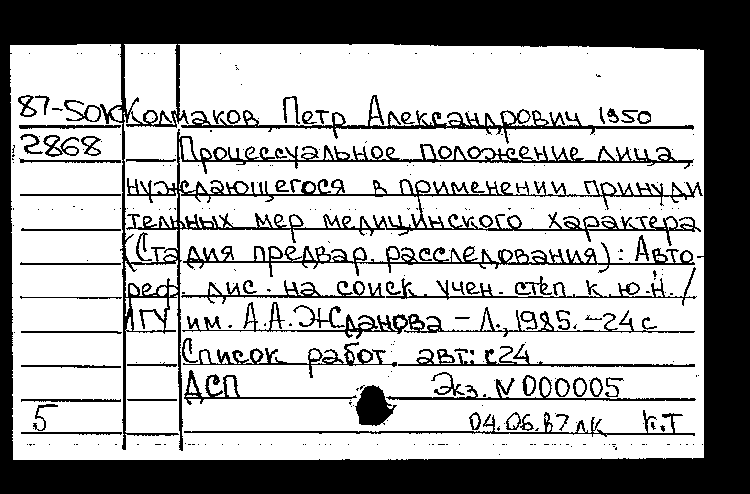 87-50к Колмаков, Петр Александрович, 1950
2868 Процессуальное положение лица,
нуждающегося в применении принуди
тельных мер медицинского характера
(Стадия предвар. расследования): Авто-
реф. дис. на соиск. учен. степ. к. ю. н. /
ЛГУ им. А.А. Жданова – Л., 1985. – 24 с
Список работ. авт.: с 24.
ДСП Экз. N 000005
5 04.06.87 лк К.Т